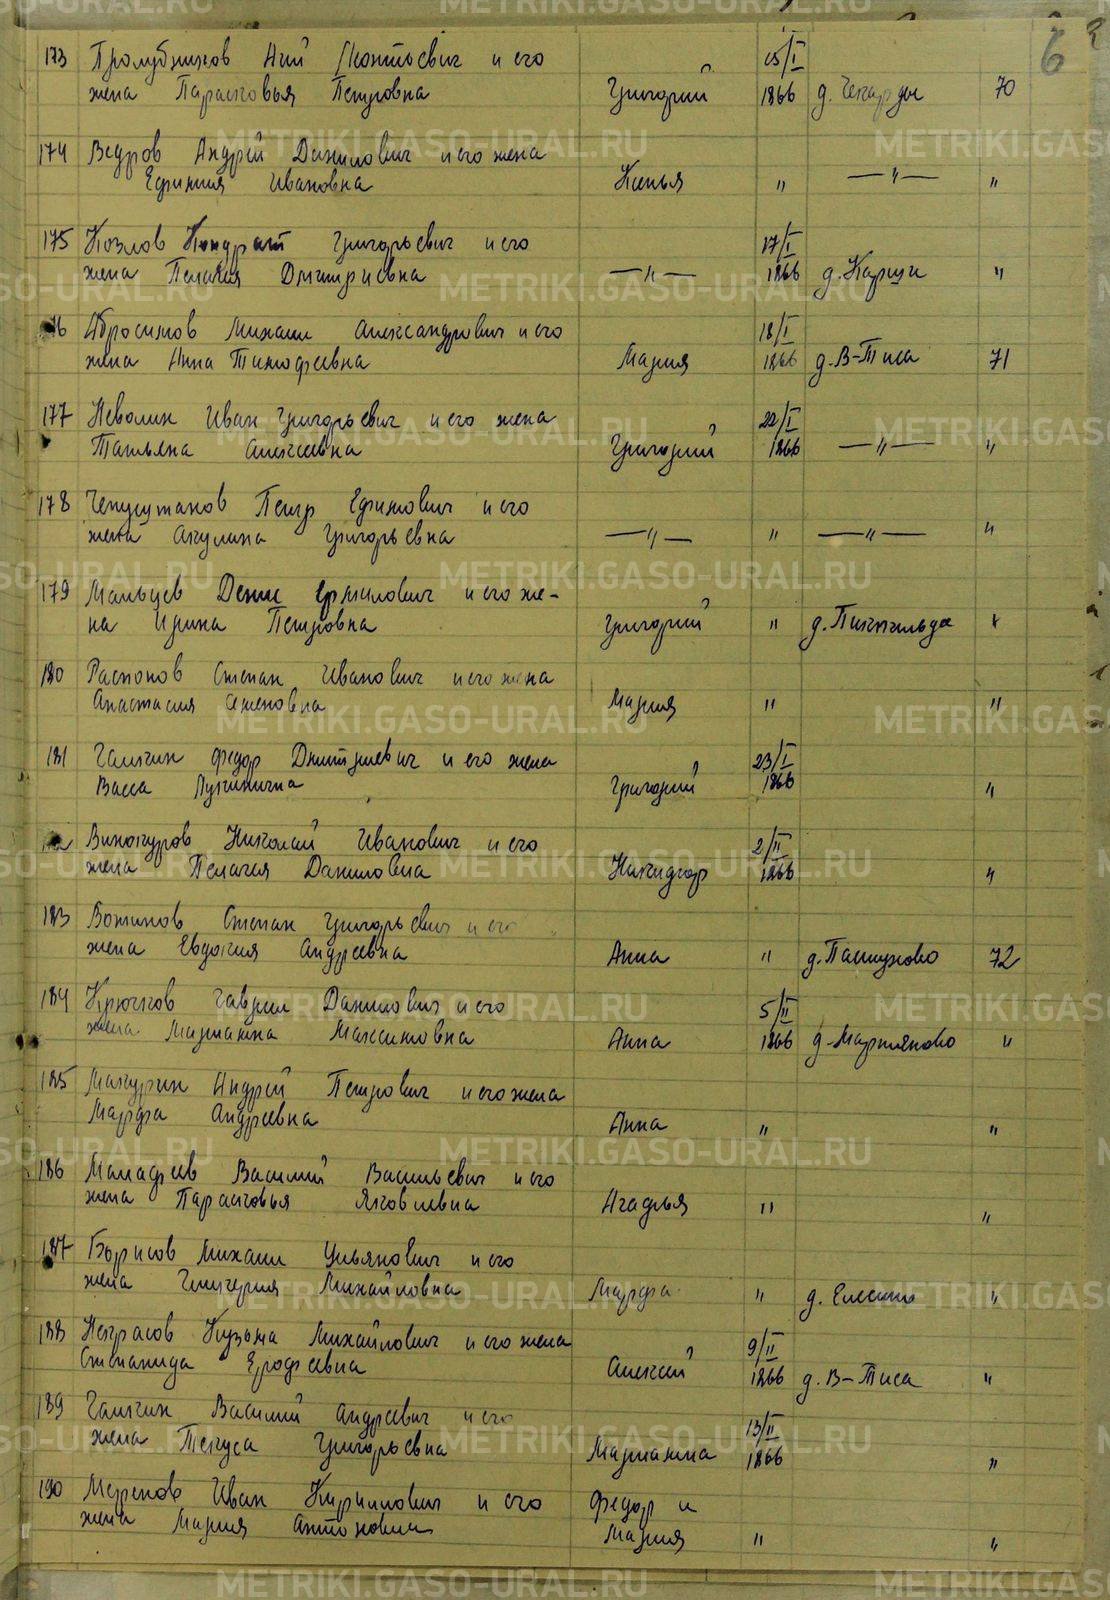 6
173 Пролубников Аггий Леонтьевич и его 15/I
жена Парасковья Петровна Григорий 1866 д. Чекарды 70
174 Ведров Андрей Данилович и его жена
Ефимия Ивановна Ксенья " —"— "
175 Козлов Кондрат Григорьевич и его 17/I
жена Пелагея Дмитриевна —"— 1866 д. Карши "
Абросимов Михаил Александрович и его 18/I
жена Анна Тимофеевна Мария 1866 д. В-Тиса 71
177 Неволин Иван Григорьевич и его жена 22/I
Татьяна Алексеевна Григорий 1866 —"— "
178 Чепуштанов Петр Ефимович и его
жена Акулина Григорьевна —"— " —"— "
179 Мальцев Денис Ермилович и его же-
на Ирина Петровна Григорий " д.
180 Распопов Степан Иванович и его жена
Анастасия Семеновна Мария " "
181 Галкин Федор Дмитриевич и его жена 23/I
Васса Лукинична Григорий 1866 "
Винокуров Николай Иванович и его 2/II
жена Пелагея Даниловна Никифор 1866 "
183 Вотинов Степан Григорьевич и его
жена Евдокия Андреевна Анна " д. Пашуково 72
184 Крючков Гаврил Данилович и его 5/II
жена Марианна Максимовна Анна 1866 д. Мартьяново "
185 Мичурин Андрей Петрович и его жена
Марфа Андреевна Анна " "
186 Малафеев Василий Васильевич и его
жена Парасковья Яковлевна Агафья " "
187 Борисов Михаил Ульянович и его
жена Гликерия Михайловна Марфа " д. "
188 Некрасов Кузьма Михайлович и его жена 9/II
Степанида Ерофеевна Алексей 1866 д. В-Тиса "
189 Галкин Василий Андреевич и его 13/II
жена Текуса Григорьевна Марианна 1866 "
190 Иван Кириллович и его Федор и
жена Мария Антоновна Мария " "
METRIKI.GASO-URAL.RU